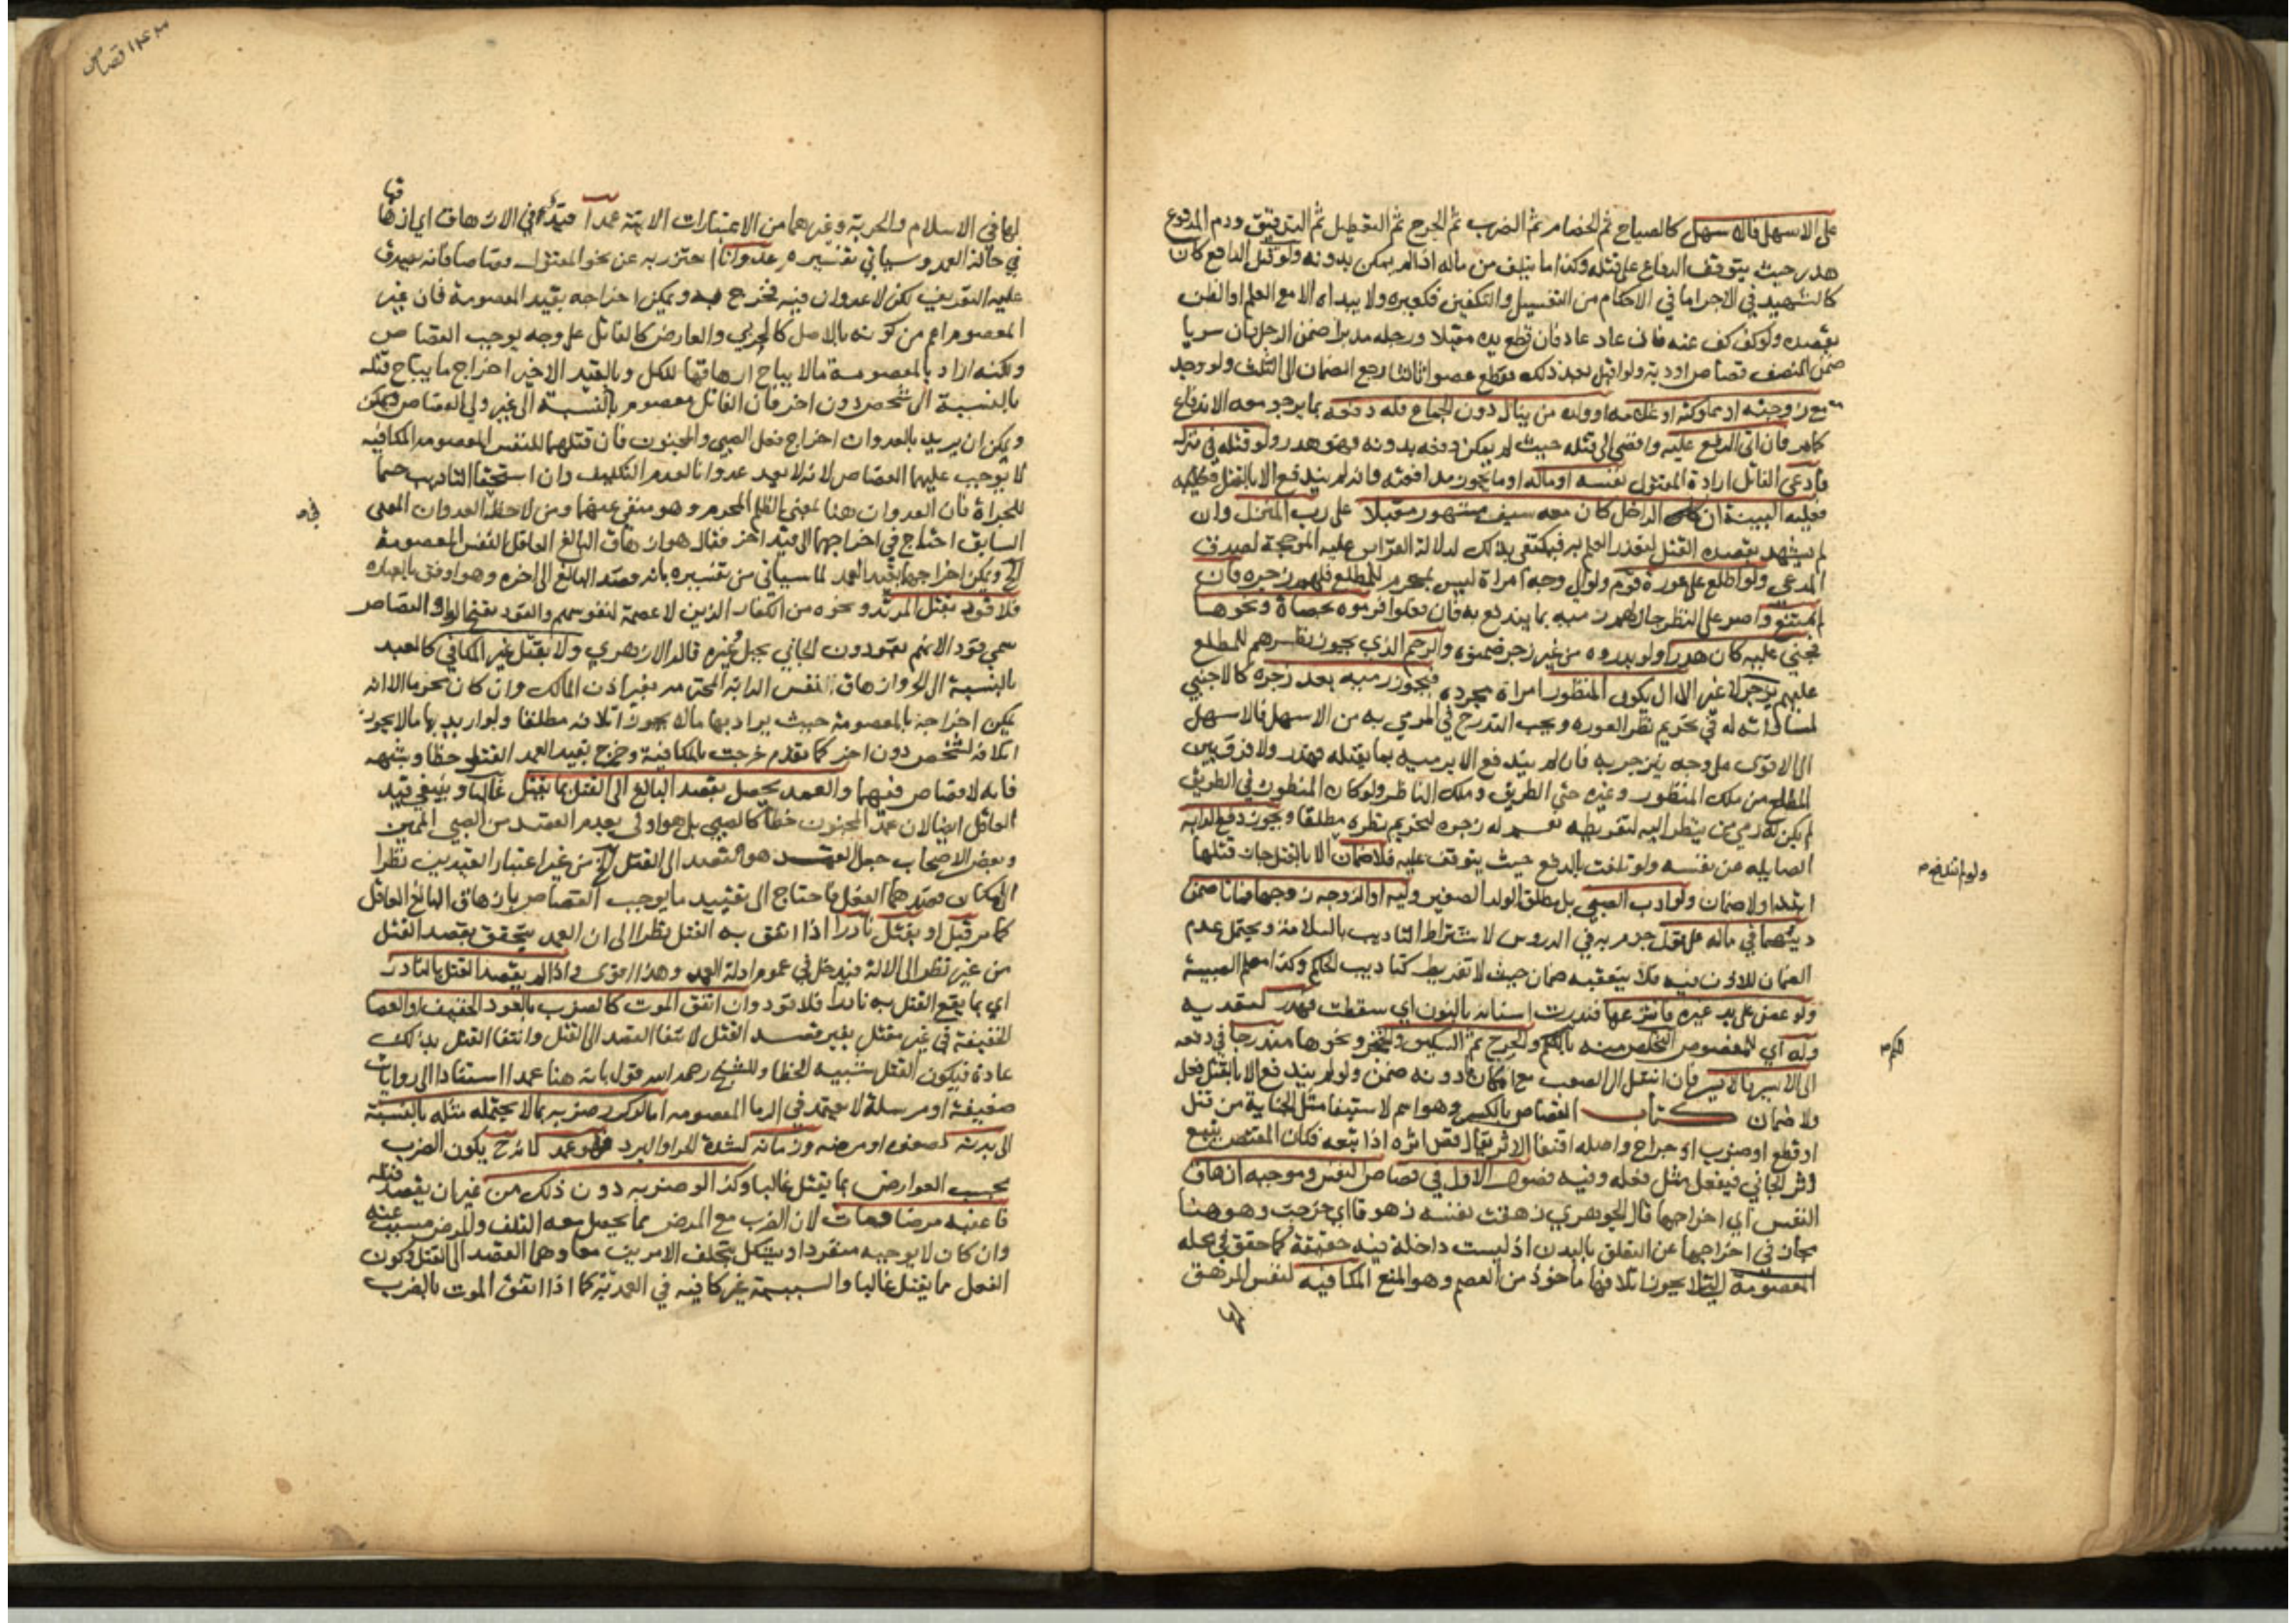 على الاسهل فالاسهل كالصياح ثم الخصام ثم الضرب ثم الجرح ثم التعطيل ثم التدفيق ودم المدفوع
هدر حيث يتوقف الدفاع على قتله وكذا ما يتلف من ماله اذا لم يمكن بدونه ولو قتل الدافع كان
كالشهيد في الاجر اما في الاحكام من التغسيل والتكفين فكغيره ولا يبداه الا مع العلم او الظن
بقصده ولو كف كف عنه فان عاد عاد فان قطع يده مقبلا ورجله مدبرا ضمن الرجل فان سريا
ضمن النصف قصاصا او دية ولو اقبل بعد ذلك فقطع عضوا ثالثا رجع الضمان الى الثلث ولو وجد
مع زوجته او مملوكته او غلامه او ولده من ينال دون الجماع فله دفعه بما يرجو معه الاندفاع
كما مر فان اتى الدفع عليه وافضى الى قتله حيث لم يمكن دفعه بدونه فهو هدر ولو قتله في منزله
فادعى القاتل ارادة المقتول نفسه او ماله او ما يجوز مدافعته وانه لم يندفع الا بالقتل
فعليه البينة ان الداخل كان معه سيف مشهور مقبلا على رب المنزل وان
لم يشهد بقصده القتل لتعذر العلم به فيكتفى بذلك لدلالة القراين عليه الموجبة لصدق
المدعي ولو اطلع على عورة قوم ولو الى وجه امراة ليس بمحرم للمطلع فلهم زجره فان
لم يمتنع واصر على النظر جاز لهم رميه بما يندفع به فان فعلوا فرموه بحصاة ونحوها
فجنى عليه كان هدرا ولو بدروه من غير زجر ضمنوه والرحم الذي يجوز نظره لهم للمطلع
عليهم يزجر لا غير الا ان يكون المنظور امراة مجردة فيجوز رميه بعد زجره كالاجنبي
لمساواته له في تحريم نظر العوره ويجب التدرج في المرمي به من الاسهل فالاسهل
الى الاقوى على وجه ينزجر به فان لم يندفع الا برميه بما يقتله فهدر ولا فرق بين
المطلع من ملك المنظور وغيره حتى الطريق وملك الناظر ولو كان المنظور في الطريق
لم يكن له رمي من ينظر اليه لتفريطه نعم له زجره لتحريم نظره مطلقا ويجوز دفع الدابه
الصايله عن نفسه ولو تلفت بالدفع حيث يتوقف عليه فلا ضمان الا بالقتل جاز قتلها
ولو لم تندفع
ابتدا ولا ضمان ولو ادب الصبي بل مطلق الولد الصغير وليه او الزوجه زوجها فماتا ضمن
ديتهما في ماله على قول جزم به في الدروس لاشتراط التاديب بالسلامة ويحتمل عدم
الضمان للاذن فيه فلا يتعقبه ضمان حيث لا تفريط كتاديب الحاكم وكذا معلم الصبية
ولو عض على يد غيره فانتزعها فندرت اسنانه بالنون اي سقطت فهدر لتعديه
وله اي للمعضوض التخلص منه باللكم والجرح ثم السكين والخنجر ونحوها متدرجا في دفعه
لكم
الى الايسر فالايسر فان انتقل الى الصعب مع امكان دونه ضمن ولو لم يندفع الا بالقتل فعل
ولا ضمان كتاب القصاص بالكسر وهو اسم لاستيفا مثل الجناية من قتل
او قطع او ضرب او جراح واصله اقتفا الاثر يقال قص اثره اذا تبعه فكان المقتص يتبع
اثر الجاني فيفعل مثل فعله وفيه فصول الاول في قصاص النفس وموجبه ازهاق
النفس اي اخراجها قال الجوهري زهقت نفسه زهوقا اي خرجت وهو هنا
مجاز في اخراجها عن التعلق بالبدن اذ ليست داخلة فيه حقيقة كما حقق في محله
المعصومة التي لا يجوز اتلافها ماخوذ من العصم وهو المنع المكافيه لنفس المزهق
لها
١٤٣ قصاص
لها في الاسلام والحرية وغيرهما من الاعتبارات الاتية عمدا قيد في الازهاق اي ازهاقها
في حالة العمد وسياتي تفسيره عدوانا احترز به عن نحو المقتول قصاصا فانه يصدق
عليه التعريف لكن لا عدوان فيه فخرج به ويمكن اخراجه بقيد المعصومة فان غير
المعصوم اعم من كونه بالاصل كالحربي والعارض كالقاتل على وجه يوجب القصاص
ولكنه اراد بالمعصومة ما لا يباح ازهاقها للكل وبالقيد الاخير اخراج ما يباح قتله
بالنسبة الى شخص دون اخر فان القاتل معصوم بالنسبة الى غير ولي القصاص
ويمكن ان يريد بالعدوان اخراج فعل الصبي والمجنون فان قتلهما للنفس المعصومه المكافيه
لا يوجب عليهما القصاص لانه لا يعد عدوانا لعدم التكليف وان استحقا التاديب حسما
للجراة فان العدوان هنا بمعنى الظلم المحرم وهو منفي عنهما ومن لاحظ العدوان المعنى
في
السابق احتاج في اخراجهما الى قيد اخر فقال هو ازهاق البالغ العاقل النفس المعصومة
الخ ويمكن اخراجهما بقيد العمد لما سياتي من تفسيره بانه قصد البالغ الى اخره وهو اوفق بالعباره
فلا قود بقتل المرتد ونحوه من الكفار الذين لا عصمة لنفوسهم والقود بفتح الواو القصاص
سمي قودا لانهم يقودون الجاني بحبل وغيره قاله الازهري ولا يقتل غير المكافي كالعبد
بالنسبة الى الحر وازهاق النفس الدابة المحترمه بغير اذن المالك وان كان محرما الا انه
يمكن اخراجه بالمعصومة حيث يراد بها ما لا يجوز اتلافه مطلقا ولو اريد بها ما لا يجوز
اتلافه لشخص دون اخر كما تقدم خرجت بالمكافية وخرج بقيد العمد القتل خطا وشبهه
فانه لا قصاص فيهما والعمد يحصل بقصد البالغ الى القتل بما يقتل غالبا وينبغي قيد
العاقل ايضا لان عمد المجنون خطا كالصبي بل هو اولى بعدم القصد من الصبي المميز
وبعض الاصحاب جعل العمد هو القصد الى القتل الخ من غير اعتبار القيدين نظرا
الى امكان قصدهما الفعل فاحتاج الى تقييد ما يوجب القصاص بازهاق البالغ العاقل
كما مر قيل او يقتل نادرا اذا اتفق به القتل نظرا الى ان العمد يتحقق بقصد القتل
من غير نظر الى الالة فيدخل في عموم ادلة العمد وهذا اقوى واذا لم يقصد القتل بالنادر
اي بما يقع القتل به نادرا فلا قود وان اتفق الموت كالضرب بالعود الخفيف او العصا
الخفيفة في غير مقتل بغير قصد القتل لانتفا القصد الى القتل وانتفا القتل بذلك
عادة فيكون القتل شبيه الخطا وللشيخ رحمه الله قول بانه هنا عمدا استنادا الى روايات
ضعيفة او مرسلة لا يعتمد في الدما المعصومه اما لو كرر ضربه بما لا يحتمله مثله بالنسبة
الى بدنه لصغره او مرضه وزمانه كشدة الحر او البرد فهو عمد لانه ح يكون الضرب
بحسب العوارض بما يقتل غالبا وكذا لو ضربه دون ذلك من غير ان يقصد قتله
فاعقبه مرضا فمات لان الضرب مع المرض مما يحصل معه التلف والمرض مسبب عنه
وان كان لا يوجبه منفردا ويشكل بتخلف الامرين معا وهما القصد الى القتل وكون
الفعل مما يقتل غالبا والسببية غير كافيه في العمديه كما اذا اتفق الموت بالضرب